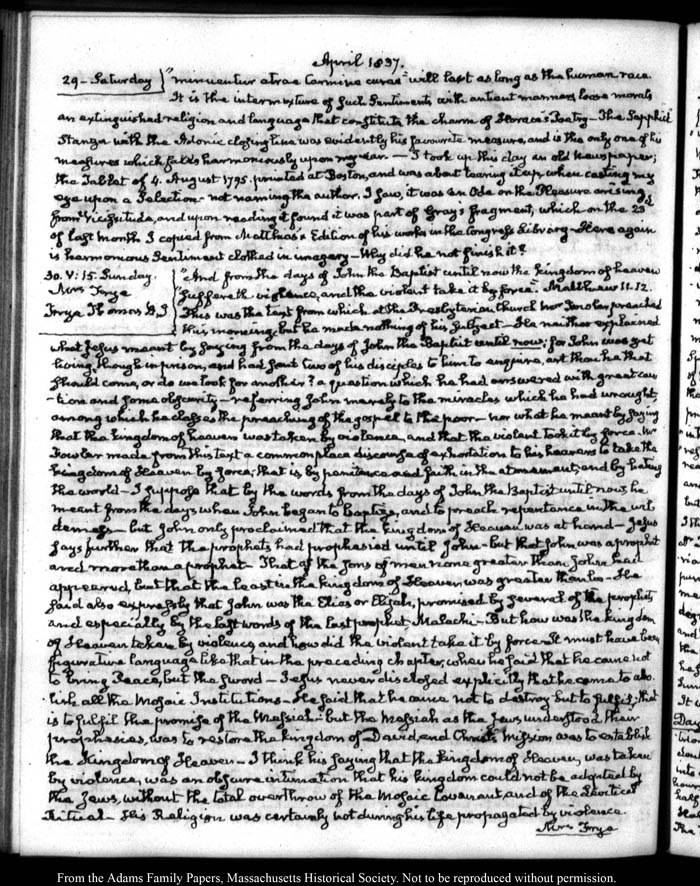 April 1837.
29 - Saturday } "minuentur atrae Carmine curae" will last as long as the human race.
It is the intermixture of such Sentiments with antient manners, loose morals
an extinguished religion and language that constitute the charm of Horace's Poetry - The Sapphic
Stanza with the Adonic closing line was evidently his favourite measure, and is the only one of his
measures which falls harmoniously upon my ear. - I took up this day an old newspaper;
the Tablet of 4. August 1795. printed at Boston, and was about tearing it up when casting my
eye upon a Selection - not naming the author. I saw, it was an Ode on the Pleasure arising
from Vicissitude, and upon reading it found it was part of Gray's fragment, which on the 23d
of last month I copied from Matthias's Edition of his works in the Congress Library - Here again
is harmonious Sentiment clothed in imagery - Why did he not finish it?
30. V: 15. Sunday. } "And from the days of John the Baptist until now the kingdom of heaven
Mrs Frye } suffereth violence, and the violent take it by force." Matthew 11. 12.
Frye Thomas B. J } This was the text from which at the Presbyterian Church Mr Fowler preached
this morning, but he made nothing of his subject - He neither explained
what Jesus meant by saying from the days of John the Baptist until now; for John was yet
living, though in prison, and had sent two of his disciples to him to enquire, art thou he that
should come, or do we look for another? a question which he had answered with great cau
-tion and some obscurity - referring John merely to the miracles which he had wrought,
among which he closes the preaching of the gospel to the poor - nor what he meant by saying
that the kingdom of heaven was taken by violence, and that the violent took it by force. Mr
Fowler made from this text a common place discourse of exhortation to his hearers to take the
kingdom of Heaven by force, that is, by penitence and faith in the atonement, and by hating
the world - I suppose that by the words from the days of John the Baptist until now, he
meant from the days when John began to Baptize, and to preach repentance in the wil
derness - but John only proclaimed that the kingdom of Heaven was at hand - Jesus
says further that the prophets had prophesied until John - but that John was a prophet
and more than a prophet - That of the sons of men none greater than John had
appeared, but that the least in the kingdom of Heaven was greater than he - He
said also expressly that John was the Elias or Elijah, promised by several of the prophets
and especially by the last words of the last prophet, Malachi - But how was the kingdom
of Heaven taken by violence, and how did the violent take it by force. It must have been
figurative language like that in the preceding chapter, when he said that he came not
to bring Peace, but the sword - Jesus never disclosed explicitly that he came to abo
lish all the Mosaic Institutions - He said that he came not to destroy but to fulfil; that
is to fulfil the promise of the Messiah - but the Messiah as the Jews understood their
prophesies, was to restore the kingdom of David, and Christ's Mission was to establish
the Kingdom of Heaven - I think his saying that the kingdom of Heaven, was taken
by violence, was an obscure intimation that his kingdom could not be adopted by
the Jews, without the total overthrow of the Mosaic Covenant, and of the Levitical
Ritual - His Religion was certainly not during his life propagated by violence.
Mrs Frye
From the Adams Family Papers, Massachusetts Historical Society. Not to be reproduced without permission.